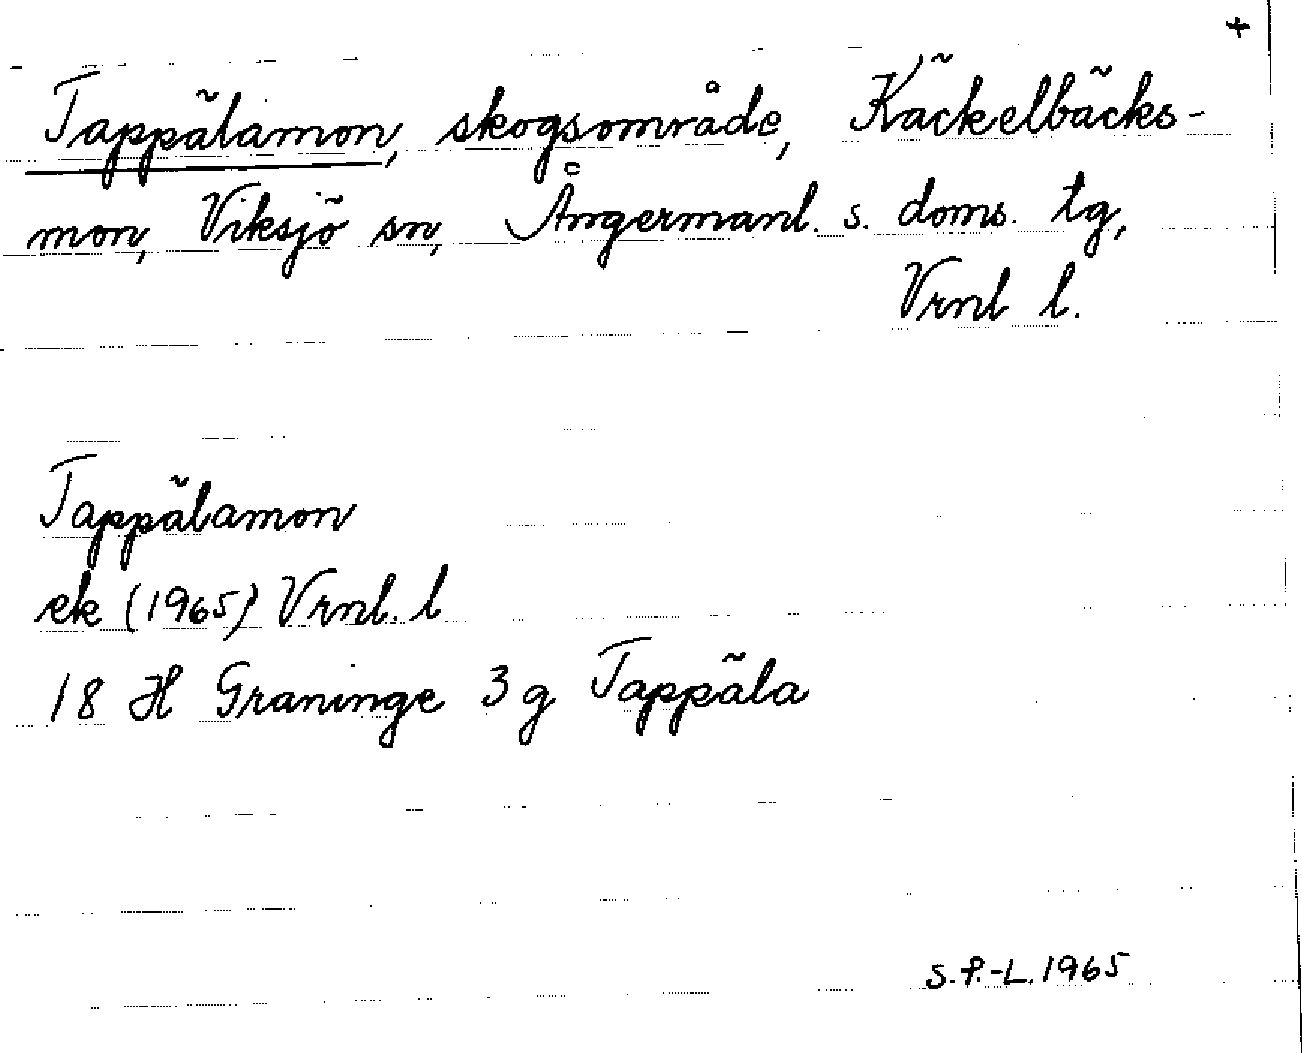 +
Tappälamon, skogsområde, Käckelbäcks-
mon, Viksjö sn, Ångermanl. s. doms. tg,
Vrnl l.
Tappälamon
ek (1965) Vrnl. l
18 H Graninge 3 g Tappäla
S.P.-L. 1965